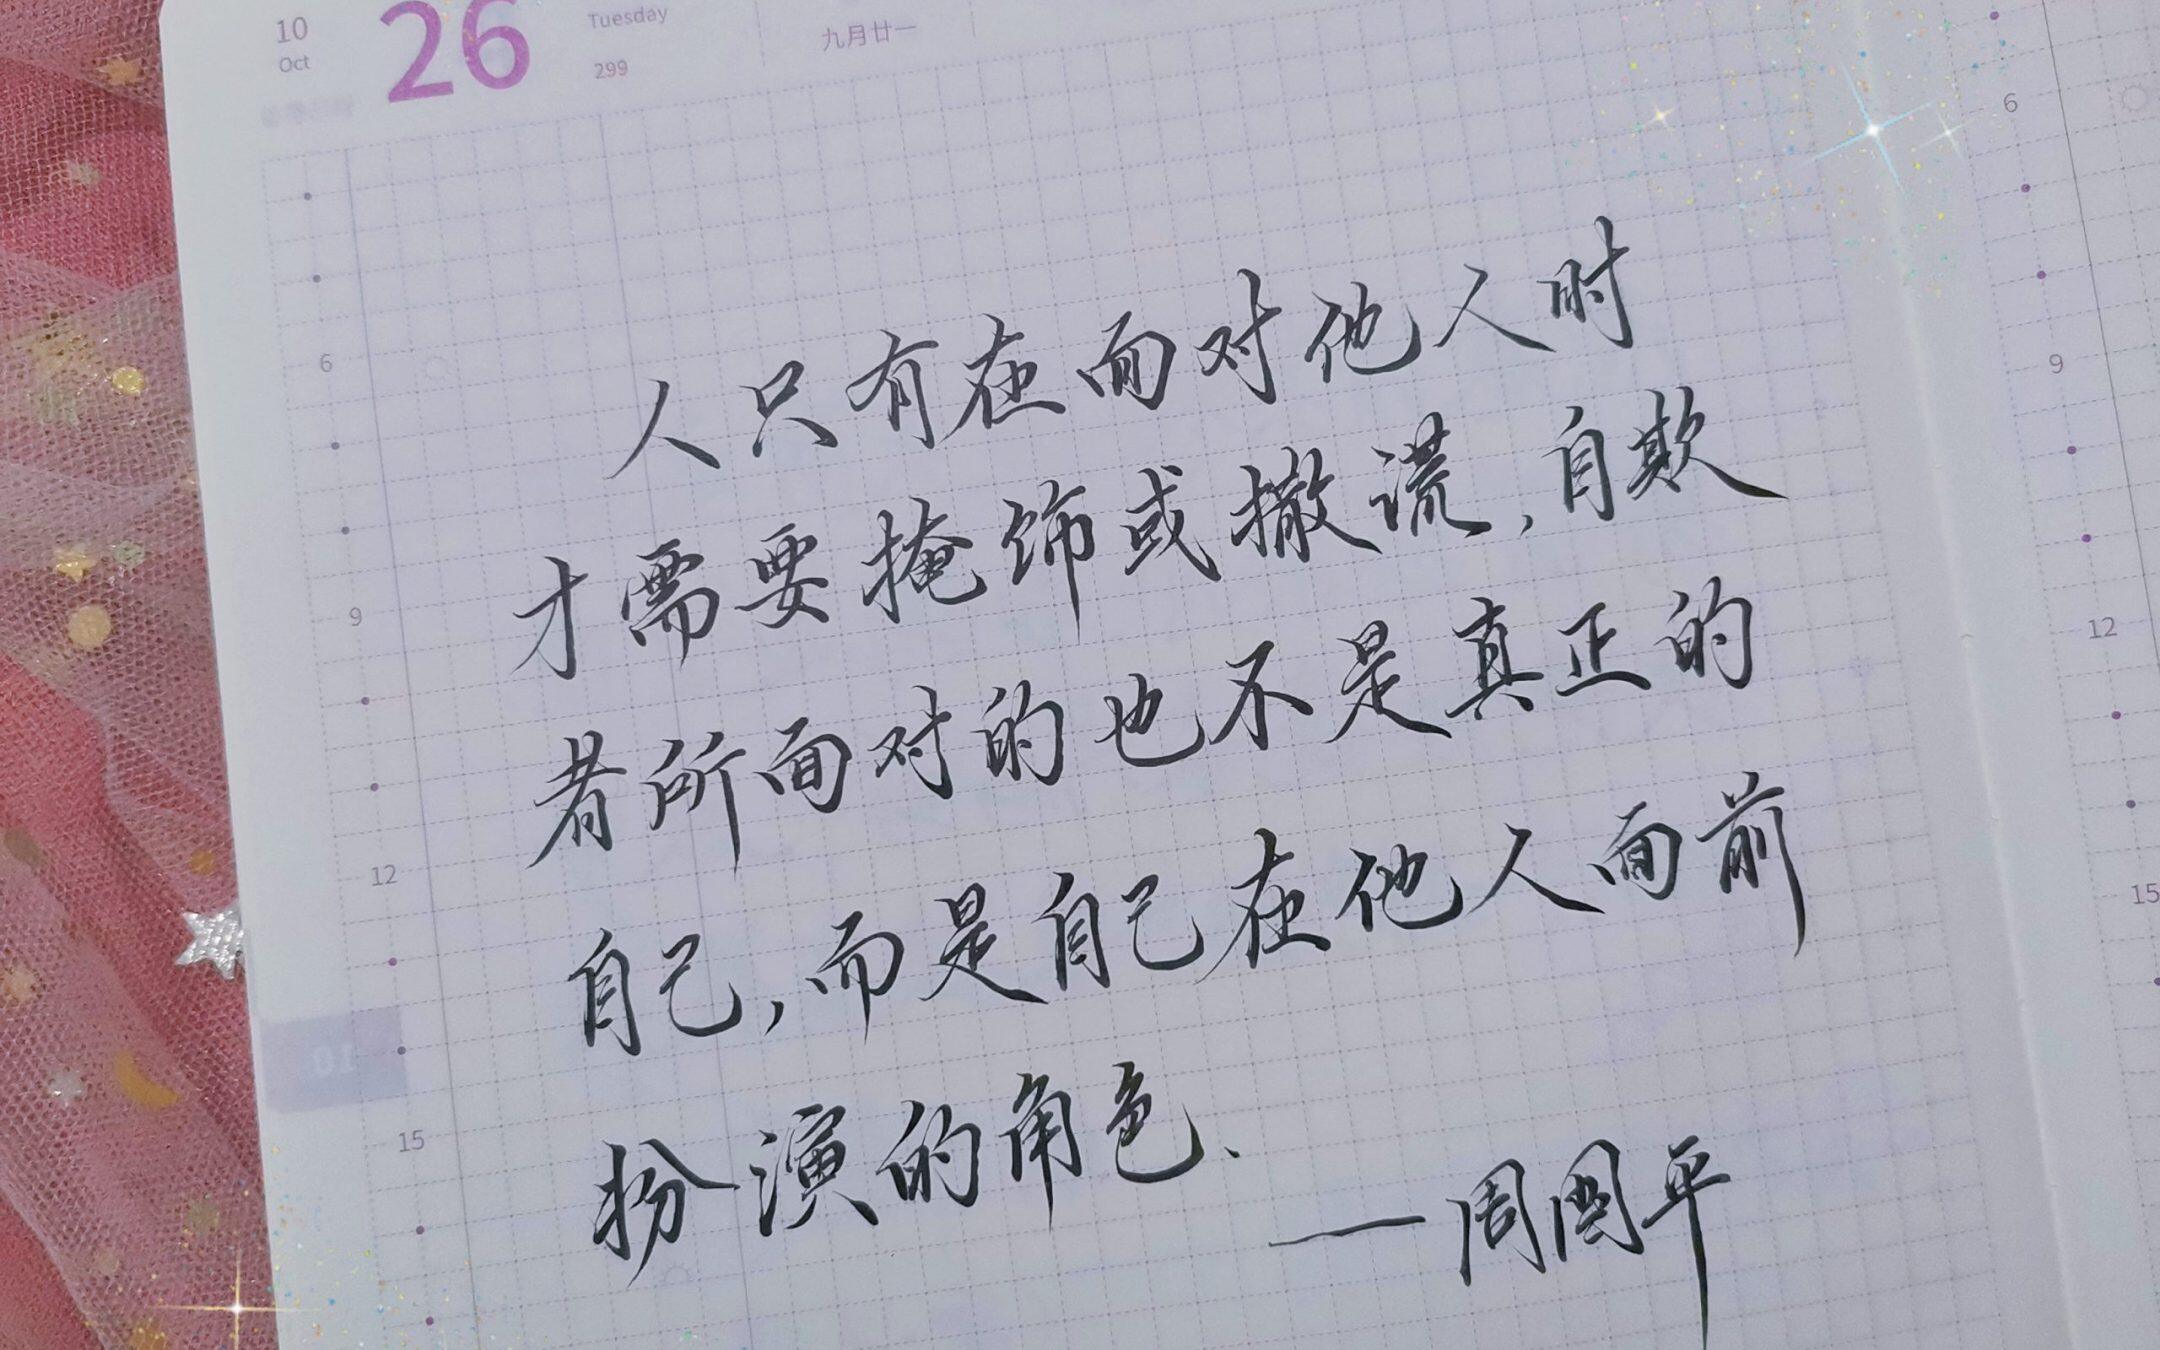 10
Oct
26
Tuesday
299
九月廿一
人只有在面对他人时
才需要掩饰或撒谎,自欺
者所面对的也不是真正的
自己,而是自己在他人面前
扮演的角色、
—周国平
6
9
12
15
10
6
9
12
15